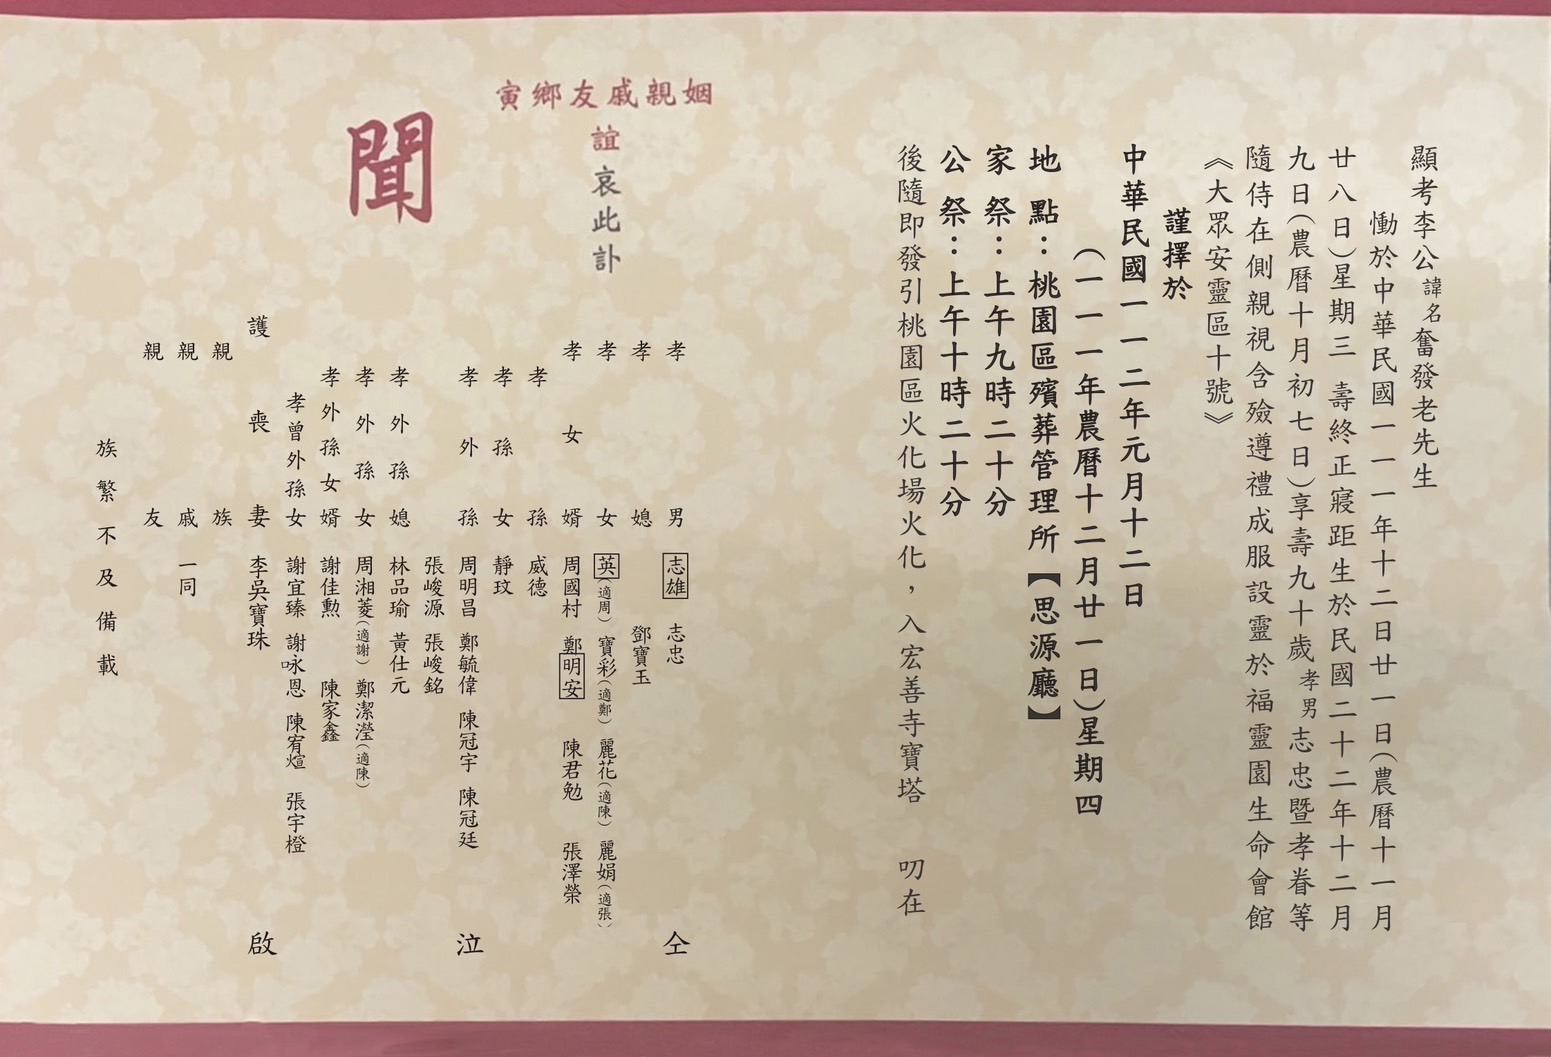 顯考李公諱名奮發老先生
慟於中華民國一一一年十二日廿一日(農曆十一月
廿八日)星期三 壽終正寢距生於民國二十二年十二月
九日(農曆十月初七日)享壽九十歲孝男志忠暨孝眷等
隨侍在側親視含殮遵禮成服設靈於福靈園生命會館
《大眾安靈區十號》
謹擇於
中華民國一一二年元月十二日
(一一一年農曆十二月廿一日)星期四
地點：桃園區殯葬管理所【思源廳】
家祭：上午九時二十分
公祭：上午十時二十分
後隨即發引桃園區火化場火化，入宏善寺寶塔 叨在
姻親戚友鄉寅
誼哀此訃
聞
孝男 志雄 志忠 仝
孝媳 鄧寶玉
孝女 英(適周) 寶彩(適鄭) 麗花(適陳) 麗娟(適張)
孝女婿 周國村 鄭明安 陳君勉 張澤榮
孝孫 威德
孝孫女 靜玟
孝外孫 周明昌 鄭毓偉 陳冠宇 陳冠廷 泣
張峻源 張峻銘
孝外孫媳 林品瑜 黃仕元
孝外孫女 周湘菱(適謝) 鄭潔瀅(適陳)
孝外孫女婿 謝佳勳 陳家鑫
孝曾外孫女 謝宜臻 謝咏恩 陳宥煊 張宇橙
護喪妻 李吳寶珠 啟
親族
親戚 一同
親友
族繁不及備載